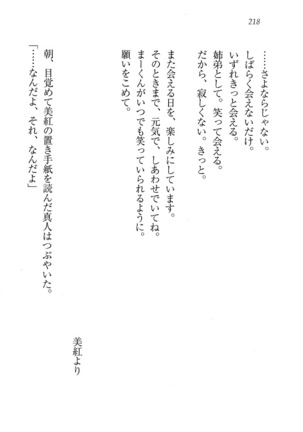 218
……さよならじゃない。
しばらく会えないだけ。
いずれきっと会える。
姉弟として。笑って会える。
だから、寂しくない。きっと。
また会える日を、楽しみにしています。
そのときまで、元気で、しあわせでいてね。
まーくんがいつでも笑っていられるように。
願いをこめて。
美紅より
朝、目覚めて美紅の置き手紙を読んだ真人はつぶやいた。
「……なんだよ、それ、なんだよ」